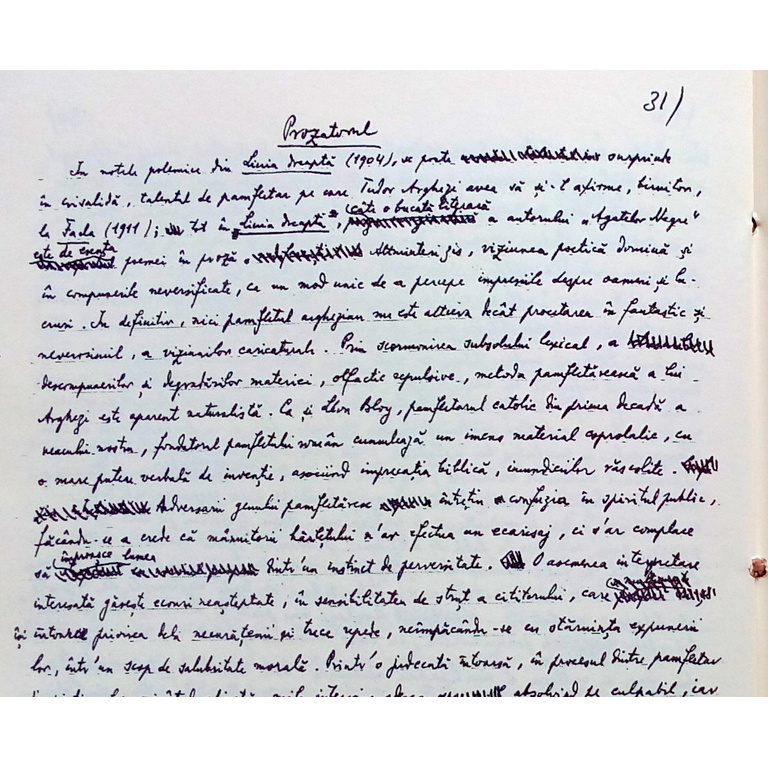 31/
Prozatorul
In notele polemice din Linia dreaptă (1904), se poate surprinde
în crisalidă, talentul de pamfletar pe care Tudor Arghezi avea să și-l afirme, biruitor,
câte o bucată literară
la Facla (1911); tot în „Linia dreaptă”, a autorului „Agatelor Negre”
este de esența
poemei în proză. Altminteri zis, viziunea poetică domină și
în compunerile neversificate, ca un mod unic de a percepe impresiile despre oameni și lu-
cruri. In definitiv, nici pamfletul arghezian nu este altceva decât proectarea în fantastic și
neverosimil, a viziunilor caricaturale. Prin scormonirea subsolului lexical, a
descompunerilor și degradărilor materiei, olfactic repulsive, metoda pamfletărească a lui
Arghezi este aparent naturalistă. Ca și Léon Bloy, pamfletarul catolic din prima decadă a
veacului nostru, fondatorul pamfletului român cumulează un imens material coprolalic, cu
o mare putere verbală de invenție, asociind imprecația biblică, imundiciilor răscolite.
Adversarii genului pamfletăresc întrețin confuzia în spiritul public,
făcându-se a crede că mânuitorii hârlețului n'ar efectua un ecarisaj, ci s'ar complace
împroașce lumea
să dintr'un instinct de perversitate. O asemenea interpretare
interesată găsește ecouri neașteptate, în sensibilitatea de struț a cititorului, care
își întoarce privirea dela necurățenii și trece repede, neîmpăcându-se cu stăruința expunerii
lor, într'un scop de salubritate morală. Printr'o judecată întoarsă, în procesul dintre pamfletar
absolvind pe culpabil, iar